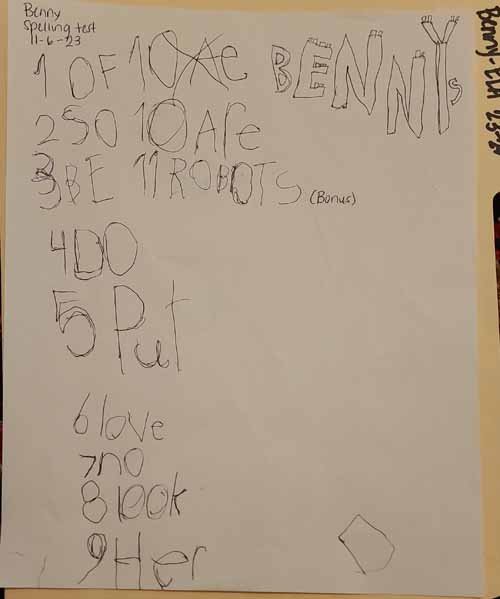 Benny
Spelling test
11-6-23
BENNYS
1 OF
10 Ae
2 SO
10 Are
3 BE
11 ROBOTS (Bonus)
4 DO
5 Put
6 love
7 no
8 look
9 Her